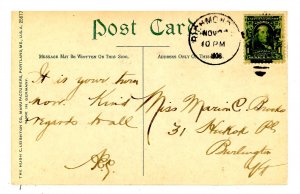 Post Card
MESSAGE MAY BE WRITTEN ON THIS SIDE.
ADDRESS ONLY ON THIS
THE HUGH C. LEIGHTON CO., MANUFACTURERS, PORTLAND, ME., U.S.A.
MADE IN GERMANY
RICHMOND
NOV
10 PM
1906
It is your turn
now. Kind
regards to all
Miss Marion C.
31 Hickok Pl.
Burlington
Vt